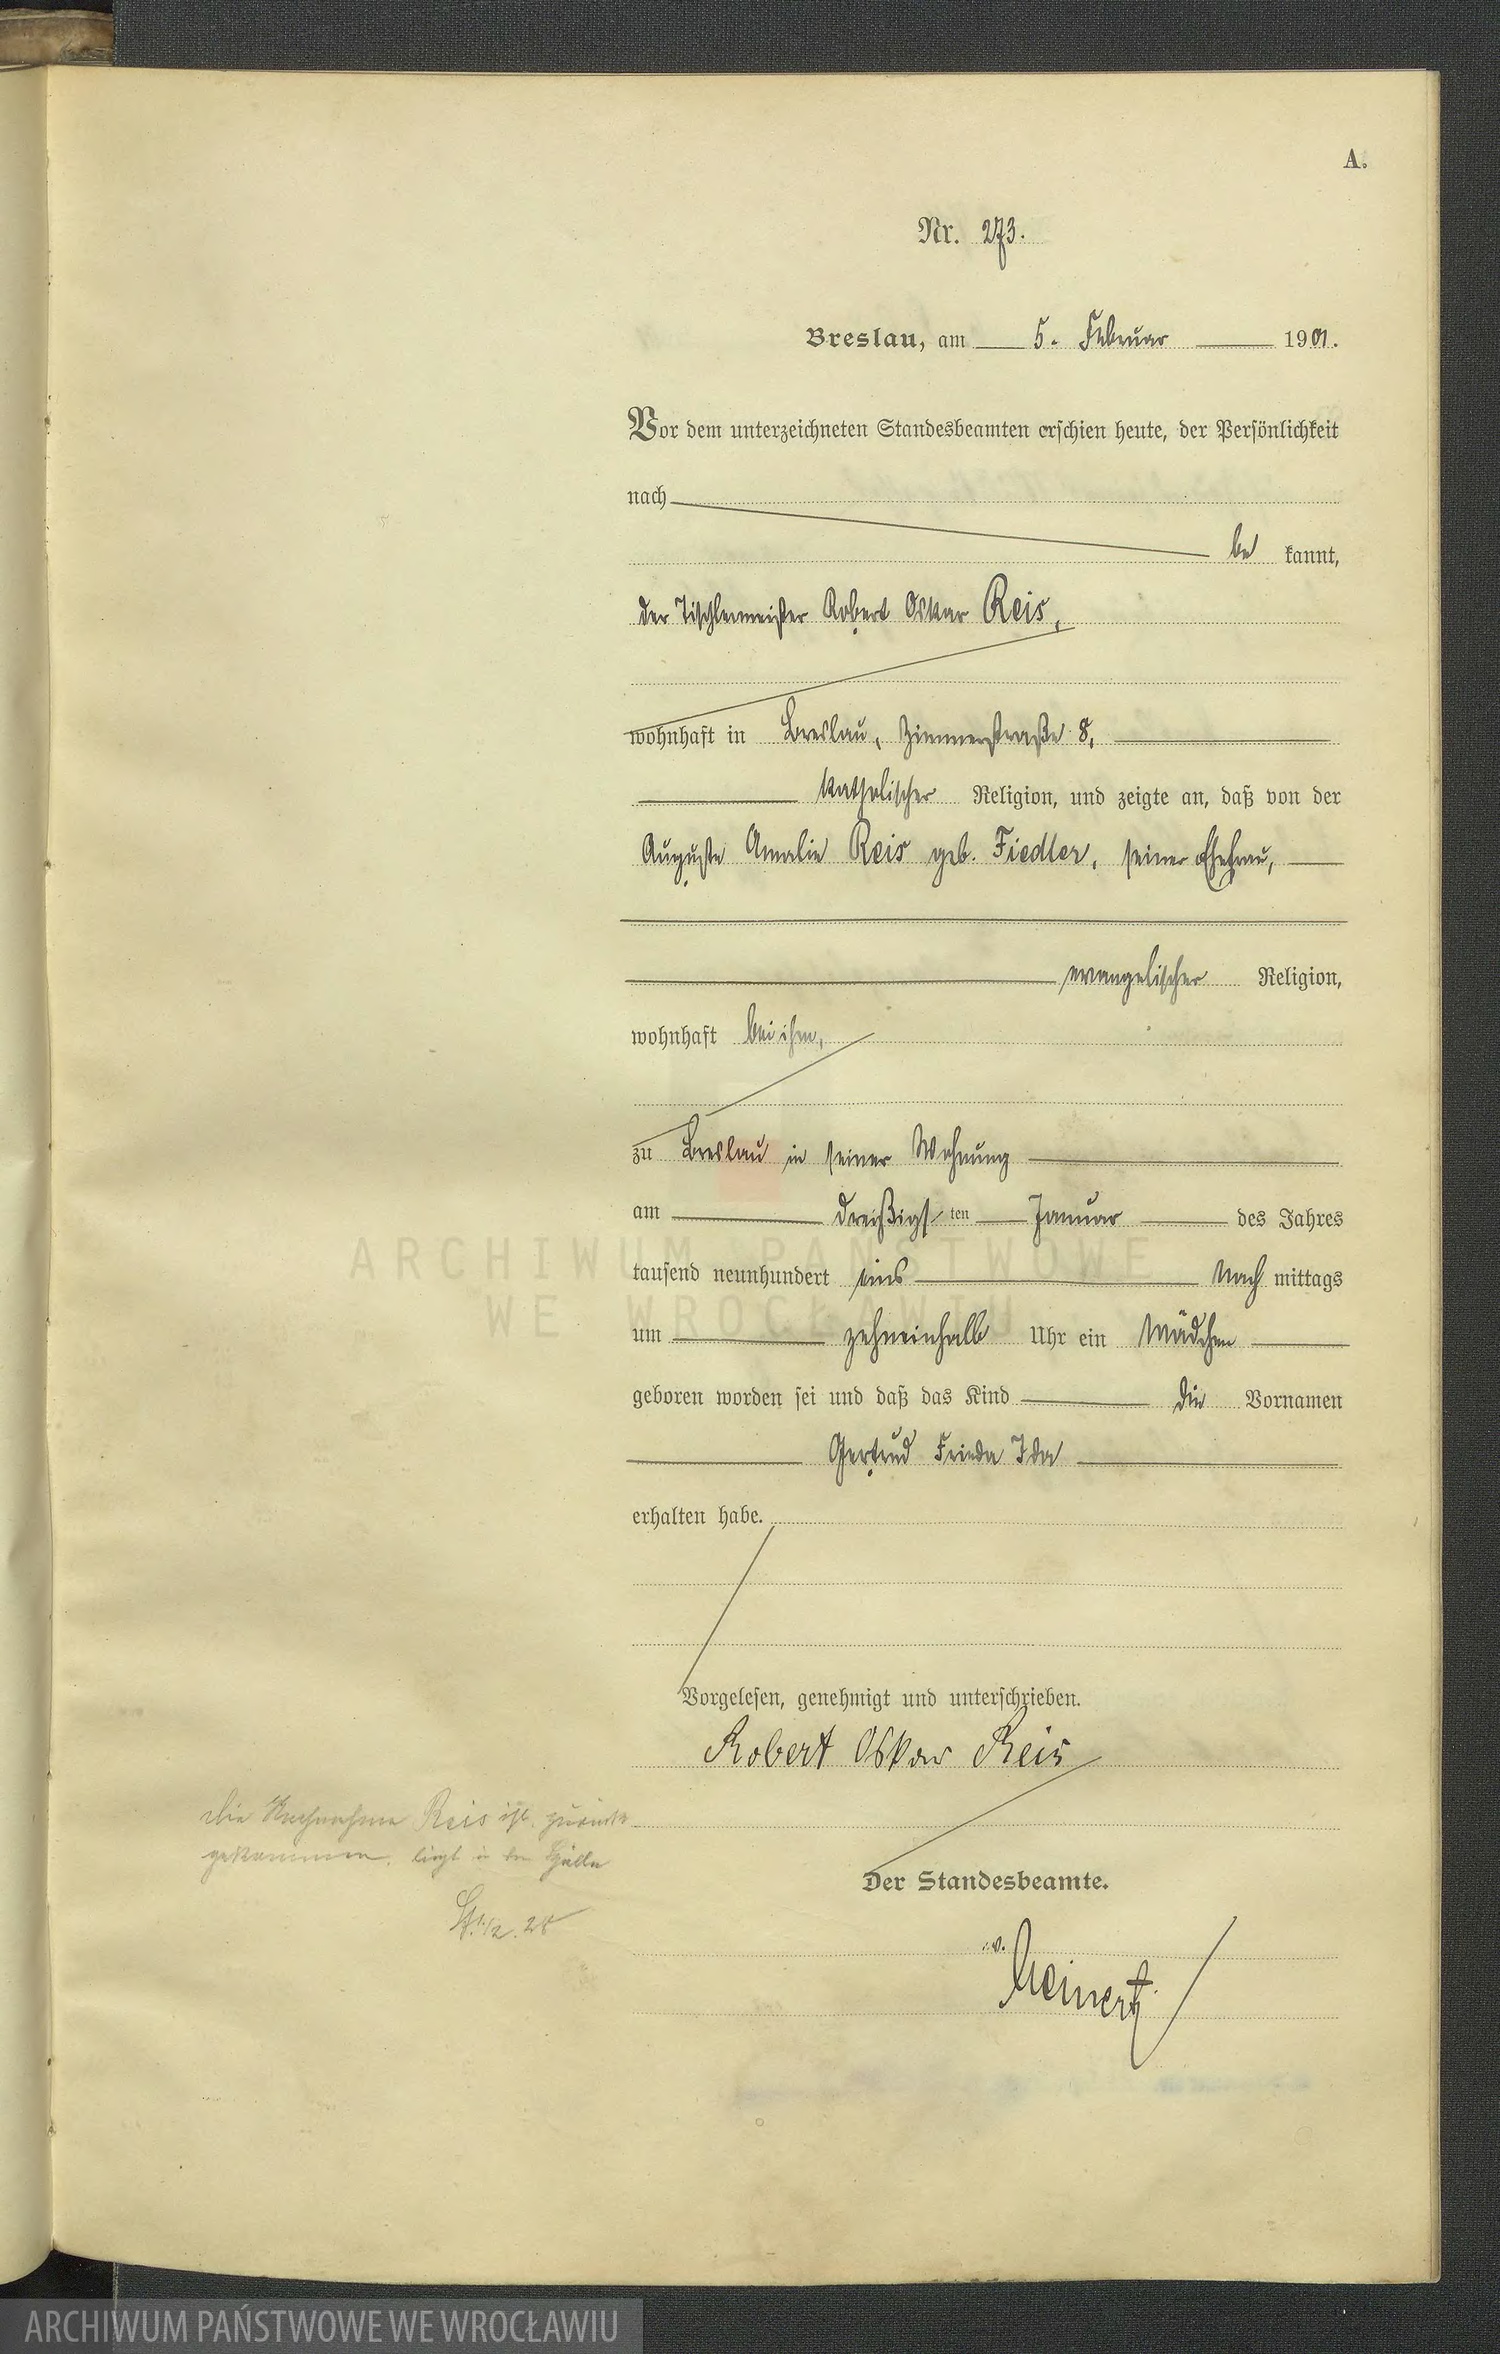 A.
Nr. 273.
Breslau, am 5. Februar 1901.
Vor dem unterzeichneten Standesbeamten erschien heute, der Persönlichkeit
nach
be kannt,
der Tischlermeister Robert Oskar Reis,
wohnhaft in Breslau, Zimmerstraße 8,
katholischer Religion, und zeigte an, daß von der
Auguste Amalie Reis geb. Fiedler, seiner Ehefrau,
evangelischer Religion,
wohnhaft bei ihm,
zu Breslau in seiner Wohnung
am dreißigs ten Januar des Jahres
tausend neunhundert eins Nach mittags
um zehneinhalb Uhr ein Mädchen
geboren worden sei und daß das Kind die Vornamen
Gertrud Frieda Ida
erhalten habe.
Vorgelesen, genehmigt und unterschrieben.
Robert Oskar Reis
Die Nachnahme Reis ist zurück-
gekommen, liegt in der
Der Standesbeamte.
i.v.
Meinert
ARCHIWUM PAŃSTWOWE
WE WROCŁAWIU
ARCHIWUM PAŃSTWOWE WE WROCŁAWIU